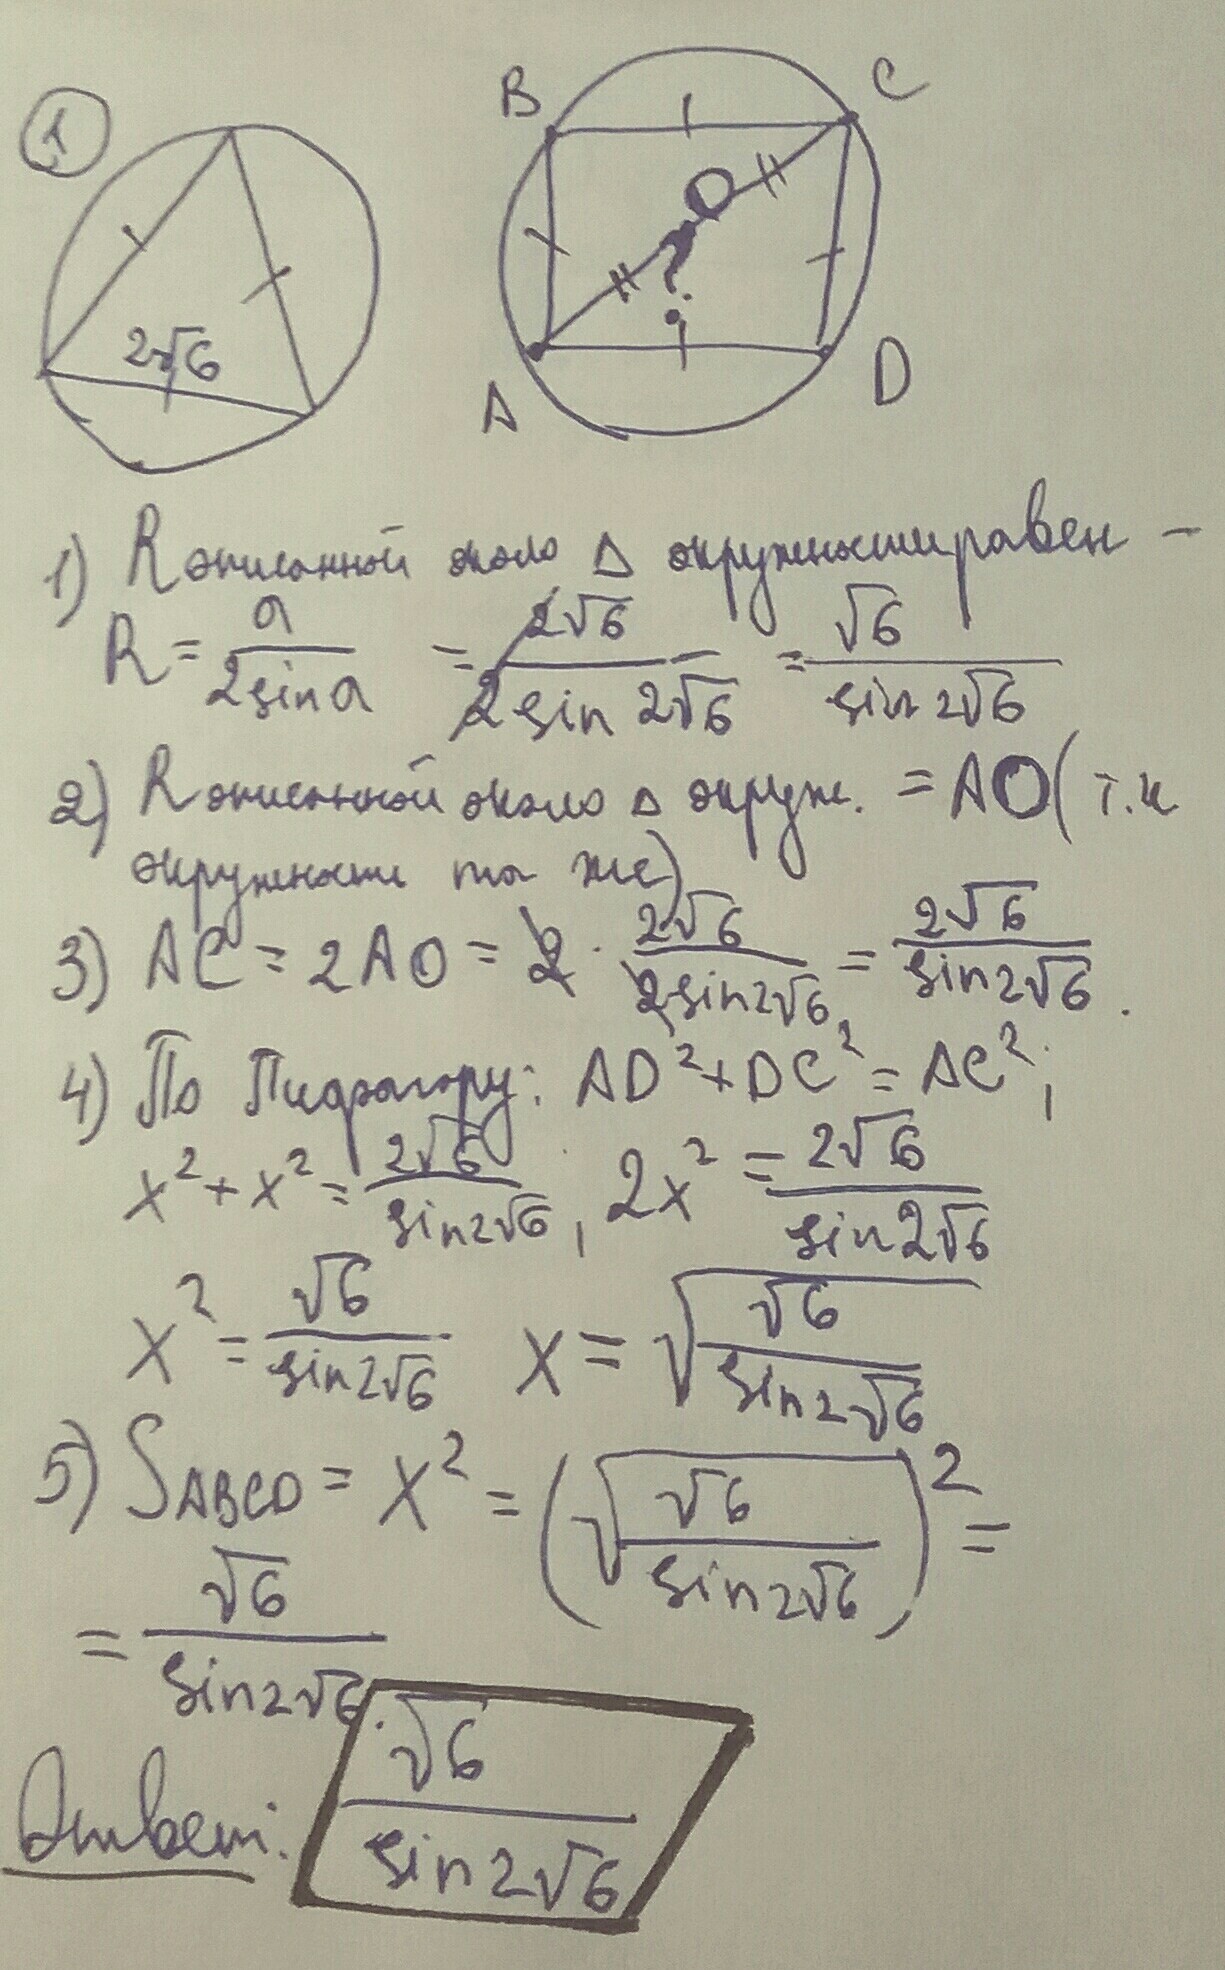 1
2√6
B
C
O
?
A
D
1) R описанной около Δ окружности равен –
R = a / 2sin a = 2√6 / 2sin 2√6 = √6 / sin 2√6
2) R описанной около Δ окруж. = AO (т.к
окружности та же)
3) AC = 2AO = 2 · 2√6 / 2sin2√6 = 2√6 / sin2√6.
4) По Пифагору: AD² + DC² = AC²;
x² + x² = 2√6 / sin2√6, 2x² = 2√6 / sin2√6
x² = √6 / sin2√6 x = √(√6 / sin2√6)
5) SABCD = x² = (√(√6 / sin2√6))² =
= √6 / sin2√6.
Ответ: √6 / sin2√6